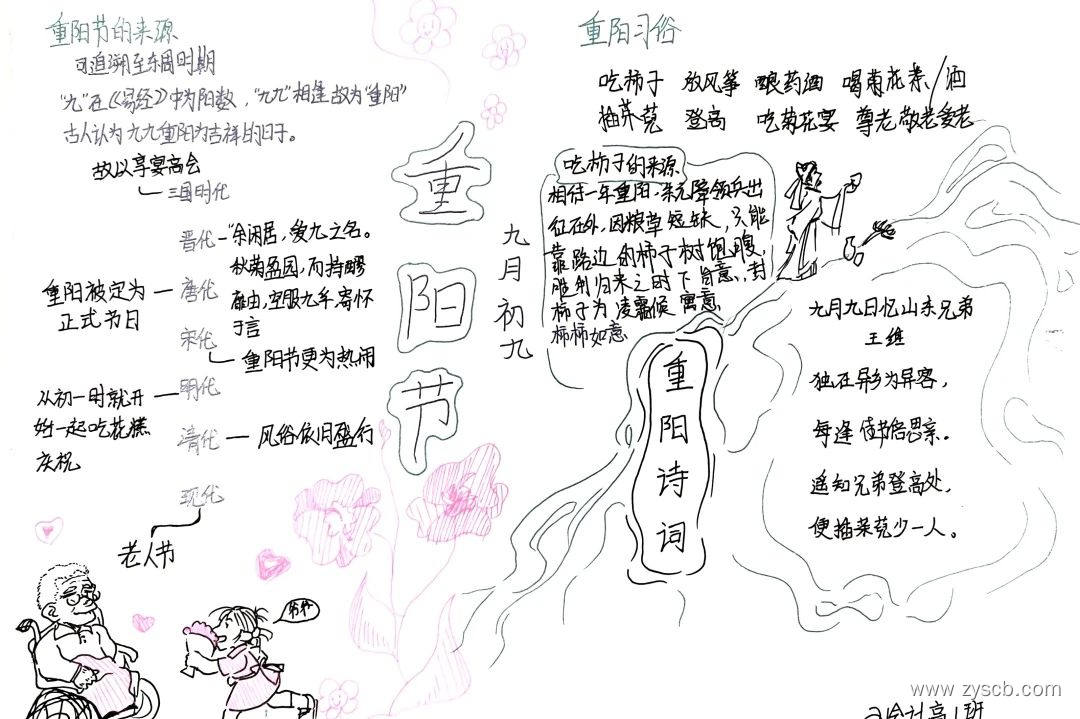 重阳节的来源
可追溯至东周时期
"九"在《易经》中为阳数，"九九"相逢故为"重阳"
古人认为九九重阳为吉祥的日子。
故以享宴高会
三国时代
晋代
"余闲居，爱九之名。
秋菊盈园，而持醪
靡由，空服九华，寄怀
于言
重阳被定为
正式节日
唐代
宋代
重阳节更为热闹
从初一时就开
始一起吃花糕
庆祝
明代
清代
风俗依旧盛行
现代
老人节
重
阳
节
九
月
初
九
重阳习俗
吃柿子 放风筝 酿药酒 喝菊花茶/酒
插茱萸 登高 吃菊花宴 尊老敬老爱老
吃柿子的来源
相传一年重阳，朱元璋领兵出
征在外，因粮草短缺，只能
靠路边的柿子树饱腹，
胜利归来之时下旨意，封
柿子为凌霜候 寓意
柿柿如意
重
阳
诗
词
九月九日忆山东兄弟
王维
独在异乡为异客，
每逢佳节倍思亲。
遥知兄弟登高处，
便插茱萸少一人。
爷爷
www.zyscb.com